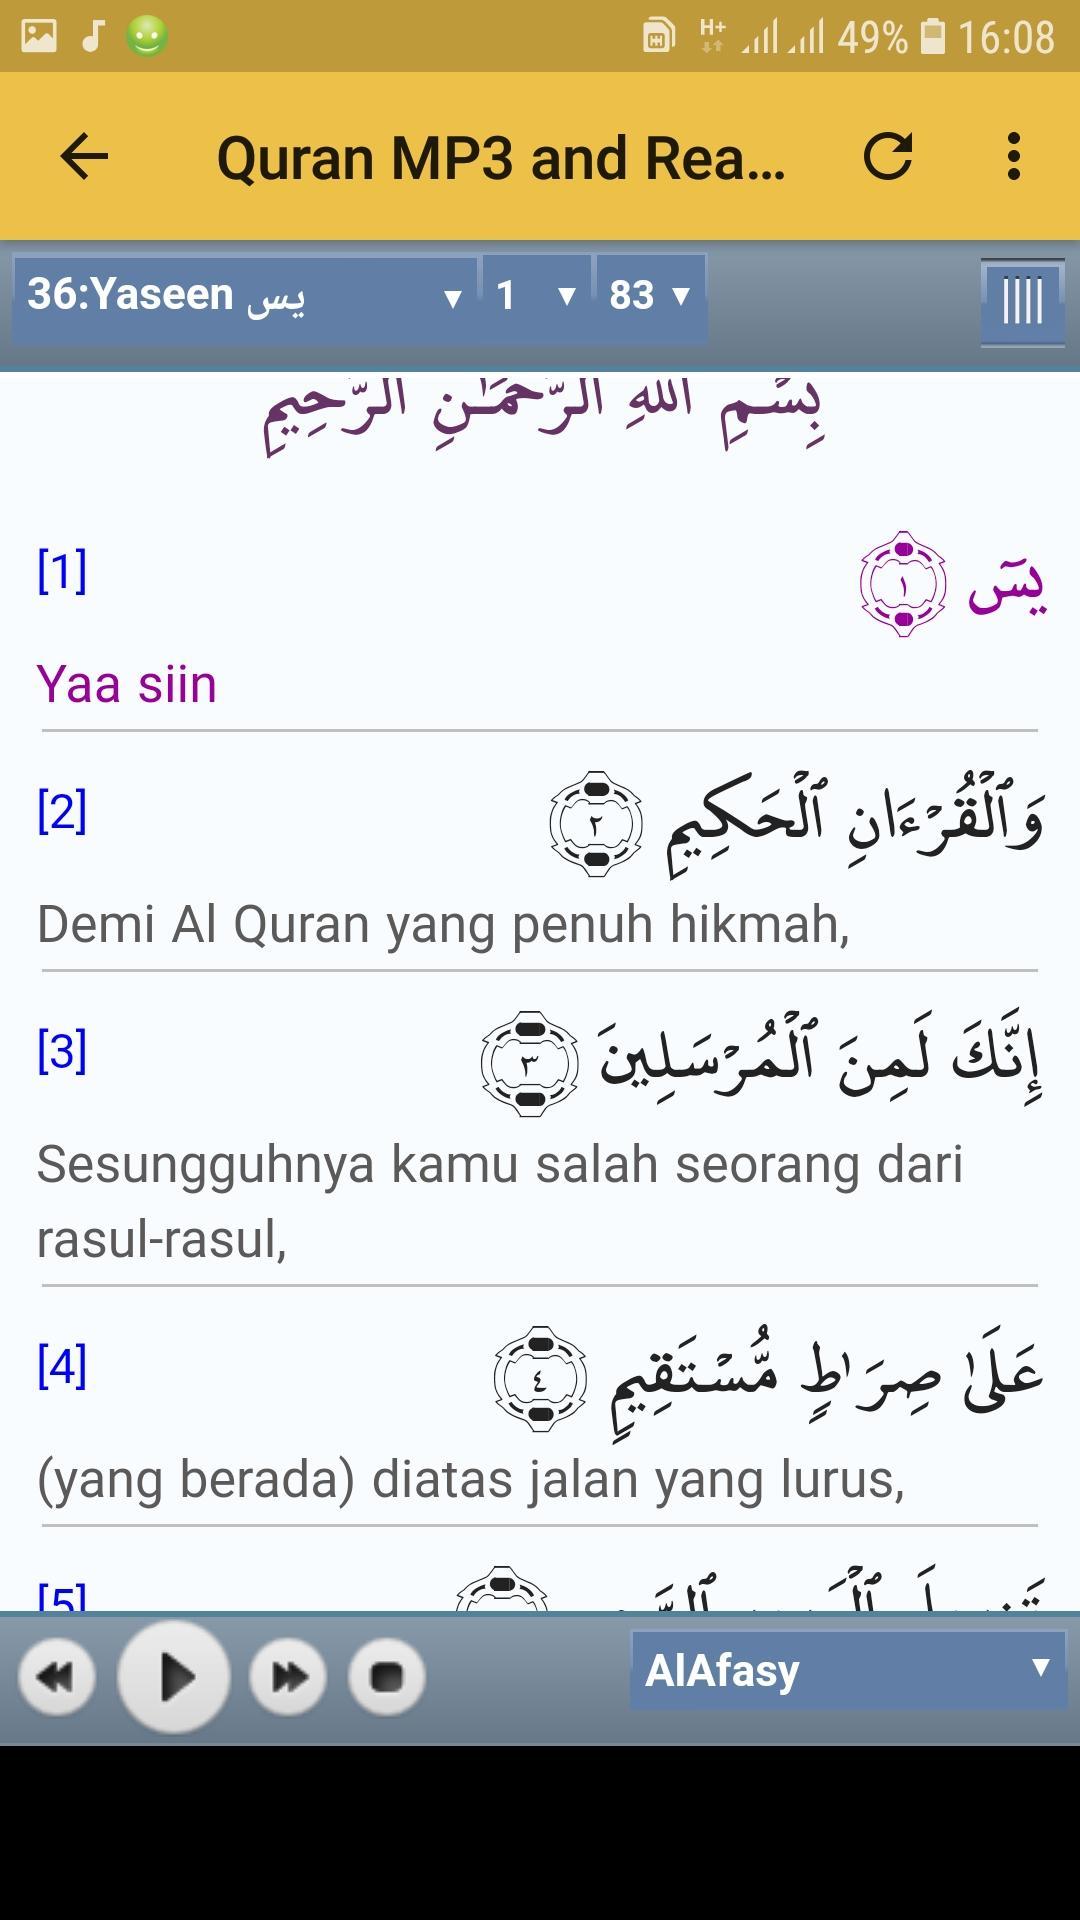 49% 16:08
Quran MP3 and Rea...
36:Yaseen يس 1 83
بِسْمِ اللَّهِ الرَّحْمَٰنِ الرَّحِيمِ
[1] يسٓ ١
Yaa siin
[2] وَٱلْقُرْءَانِ ٱلْحَكِيمِ ٢
Demi Al Quran yang penuh hikmah,
[3] إِنَّكَ لَمِنَ ٱلْمُرْسَلِينَ ٣
Sesungguhnya kamu salah seorang dari
rasul-rasul,
[4] عَلَىٰ صِرَٰطٍ مُّسْتَقِيمٍ ٤
(yang berada) diatas jalan yang lurus,
[5]
AlAfasy